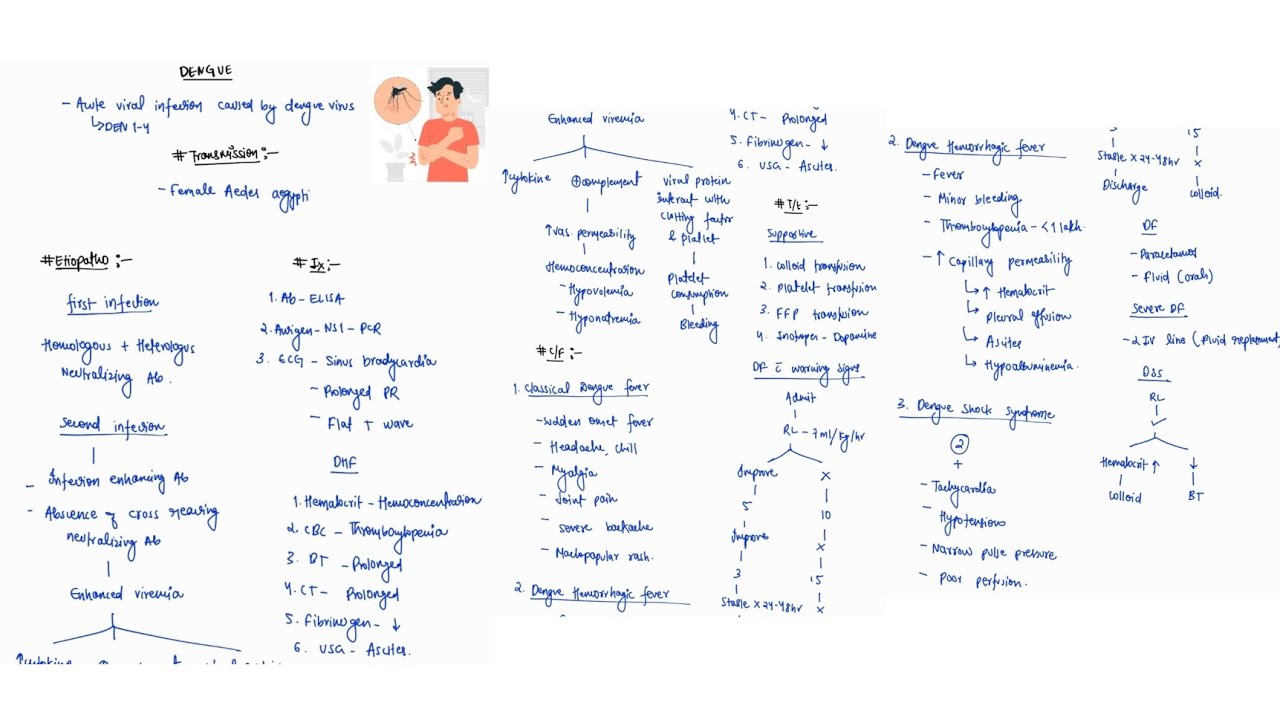 DENGUE
- Acute viral infection caused by dengue virus
↳ DEN 1-4
# Transmission :-
- Female Aedes aegypti
# Etiopatho :-
first infection
Homologous + Heterologus
Neutralizing Ab.
second infection
- Infection enhancing Ab
- Abscence of cross reacting
neutralizing Ab
Enhanced viremia
↑cytokine
# Ix :-
1. Ab - ELISA
2. Antigen - NS1 - PCR
3. ECG - Sinus bradycardia
- Prolonged PR
- Flat T wave
DHF
1. Hematocrit - Hemoconcentration
2. CBC - Thrombocytopenia
3. BT - Prolonged
4. CT - Prolonged
5. Fibrinogen - ↓
6. USG - Ascites.
Enhanced viremia
↑cytokine
⊕complement
↑vas. permeability
Hemoconcentration
- Hypovolemia
- Hyponatremia
viral protein
interact with
clotting factor
& platelet
Platelet
consumption
Bleeding
# C/F :-
1. Classical Dengue fever
- sudden onset fever
- Headache, chill
- Myalgia
- Joint pain
- severe backache
- Maculopapular rash.
2. Dengue Hemorrhagic fever
4. CT - Prolonged
5. Fibrinogen - ↓
6. USG - Ascites.
# T/t :-
Supportive
1. colloid transfusion
2. Platelet transfusion
3. FFP transfusion
4. Inotropes - Dopamine
DF c̄ warning signs
Admit
RL - 7 ml/kg/hr
Improve
5
Improve
3
Stable x 24-48hr
x
10
x
15
x
2. Dengue Hemorrhagic fever
- Fever
- Minor bleeding
- Thrombocytopenia - <1 lakh.
- ↑ Capillary permeability
↳ ↑ Hematocrit
↳ Pleural effusion
↳ Ascites
↳ Hypoalbuminemia.
3. Dengue Shock Syndrome
2
+
- Tachycardia
- Hypotension
- Narrow pulse pressure
- Poor perfusion.
3
Stable x 24-48hr
Discharge
15
x
colloid.
DF
- Paracetamol
- Fluid (orals)
Severe DF
- 2 IV line (fluid replacement)
DSS
RL
✓
Hematocrit ↑
colloid
↓
BT